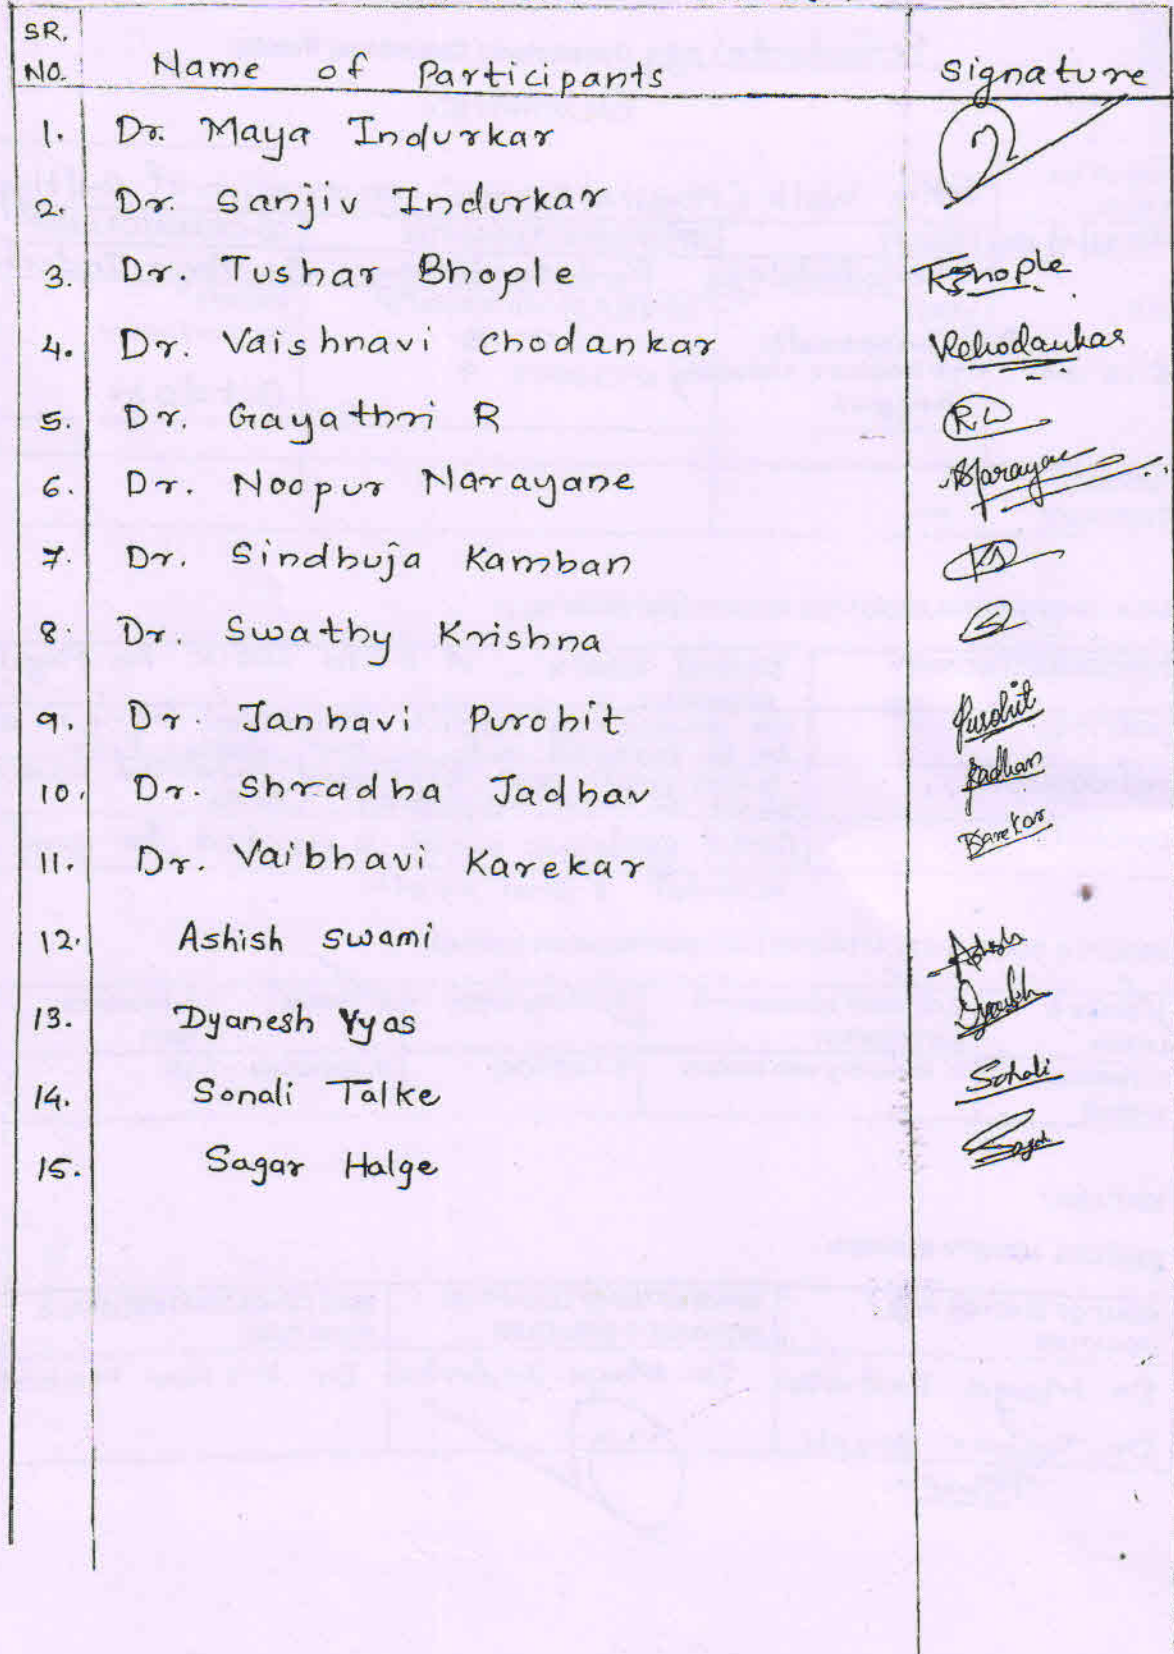 SR.
NO. Name of Participants Signature
1. Dr. Maya Indurkar
2. Dr. Sanjiv Indurkar
3. Dr. Tushar Bhople TBhople
4. Dr. Vaishnavi Chodankar VChodankar
5. Dr. Gayathri R
6. Dr. Noopur Narayane
7. Dr. Sindhuja Kamban
8. Dr. Swathy Krishna
9. Dr. Janhavi Purohit Purohit
10. Dr. Shradha Jadhav Jadhav
11. Dr. Vaibhavi Karekar Karekar
12. Ashish Swami Ashish
13. Dyanesh Vyas
14. Sonali Talke Sonali
15. Sagar Halge Sagar